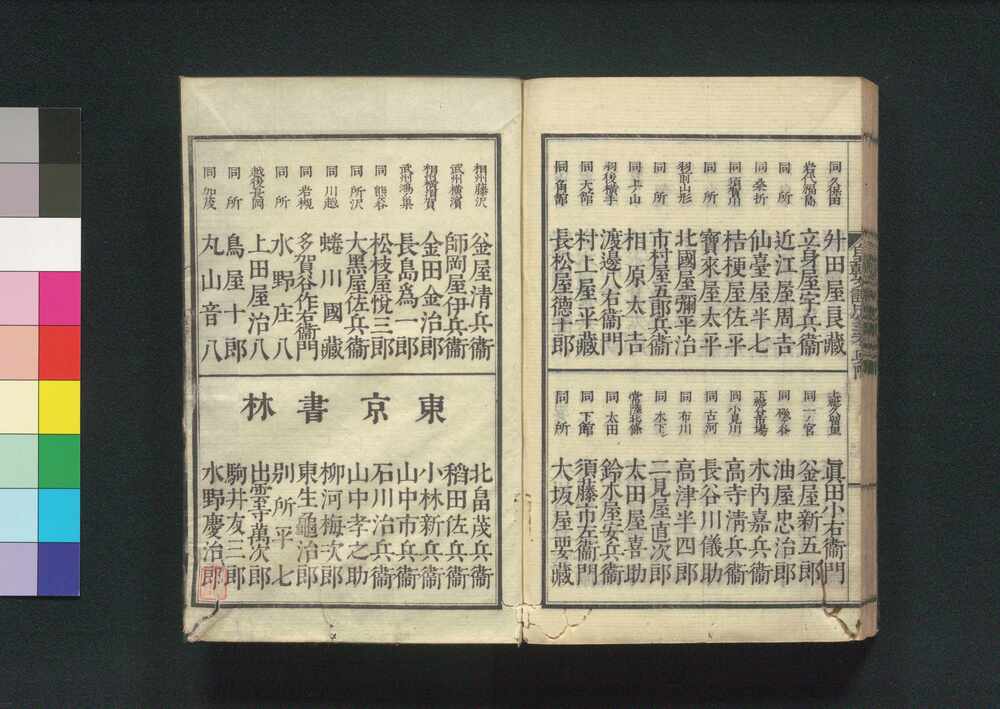 同 久保田 舛田屋良藏
岩代福島 立身屋宇兵衞
同 所 近江屋周吉
同 桑折 仙臺屋半七
同 須賀川 桔梗屋佐平
同 所 寶來屋太平
羽前山形 北國屋彌平治
同 所 市村屋五郎兵衞
同 上ノ山 相原太吉
羽後橫手 渡邊八右衞門
同 大館 村上屋平藏
同 角館 長松屋德十郎
上総久留里 眞田小右衞門
同 一ノ宮 釜屋新五郎
同 油屋忠治郎
木内嘉兵衞
同 小見川 高寺淸兵衞
同 古河 長谷川儀助
同 布川 高津半四郎
同 水上 二見屋直次郎
常陸北條 太田屋喜助
同 太田 鈴木屋安兵衞
同 下館 須藤市左衞門
同 所 大坂屋要藏
相州藤沢 釜屋清兵衞
武州橫濱 師岡屋伊兵衞
相州浦賀 金田金治郎
武州鴻巣 長島爲一郎
同 熊谷 松枝屋悅三郎
同 所沢 大黒屋佐兵衞
同 川越 蜷川國藏
同 岩槻 多賀谷作左衞門
同 所 水野庄八
越後長岡 上田屋治八
同 所 鳥屋十郎
同 加茂 丸山音八
東京書林
北畠茂兵衞
稻田佐兵衞
小林新兵衞
山中市兵衞
石川治兵衞
山中孝之助
柳河梅次郎
東生龜治郎
別所平七
出雲寺萬次郎
駒井友三郎
水野慶治郎